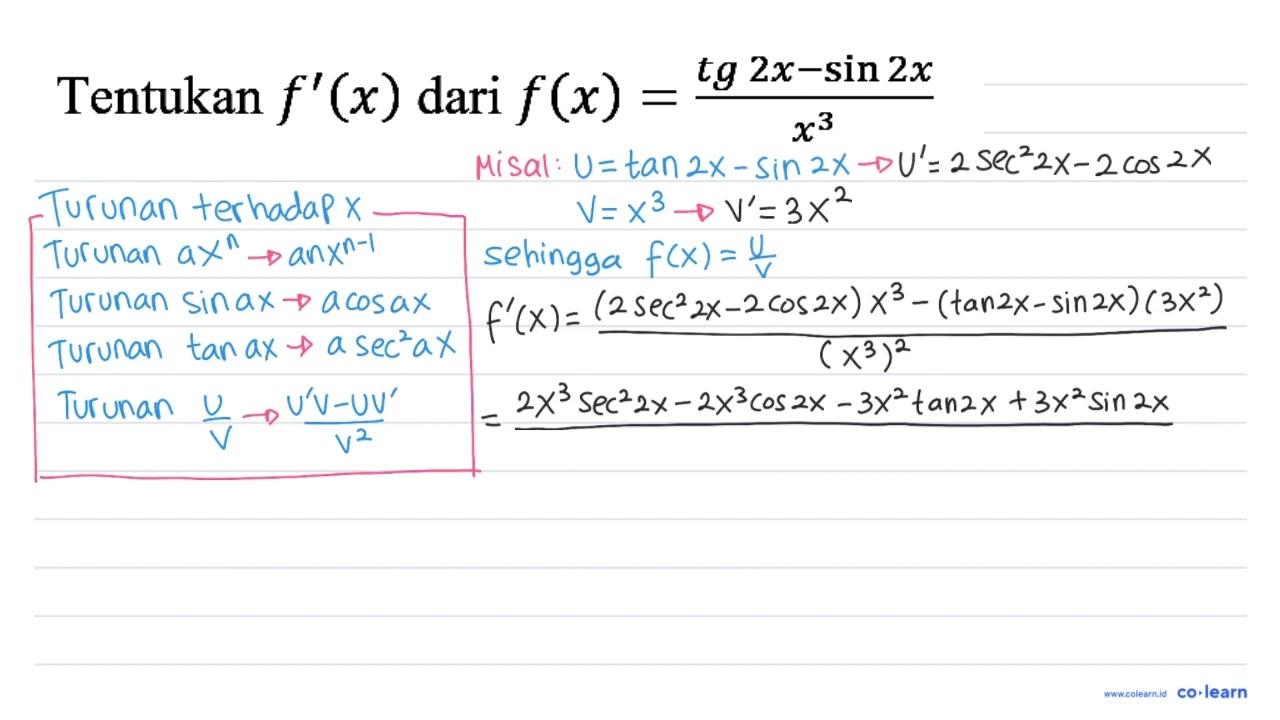 Tentukan f'(x) dari f(x) = (tg 2x−sin 2x)/x³
Misal: U = tan 2x − sin 2x → U' = 2 sec² 2x − 2 cos 2x
V = x³ → V' = 3x²
sehingga f(x) = U/V
f'(x) = ((2 sec² 2x − 2 cos 2x) x³ − (tan 2x − sin 2x) (3x²))/(x³)²
= 2x³ sec² 2x − 2x³ cos 2x − 3x² tan 2x + 3x² sin 2x
Turunan terhadap x
Turunan axⁿ → anxⁿ⁻¹
Turunan sin ax → a cos ax
Turunan tan ax → a sec² ax
Turunan U/V → (U'V − UV')/V²
www.colearn.id co·learn